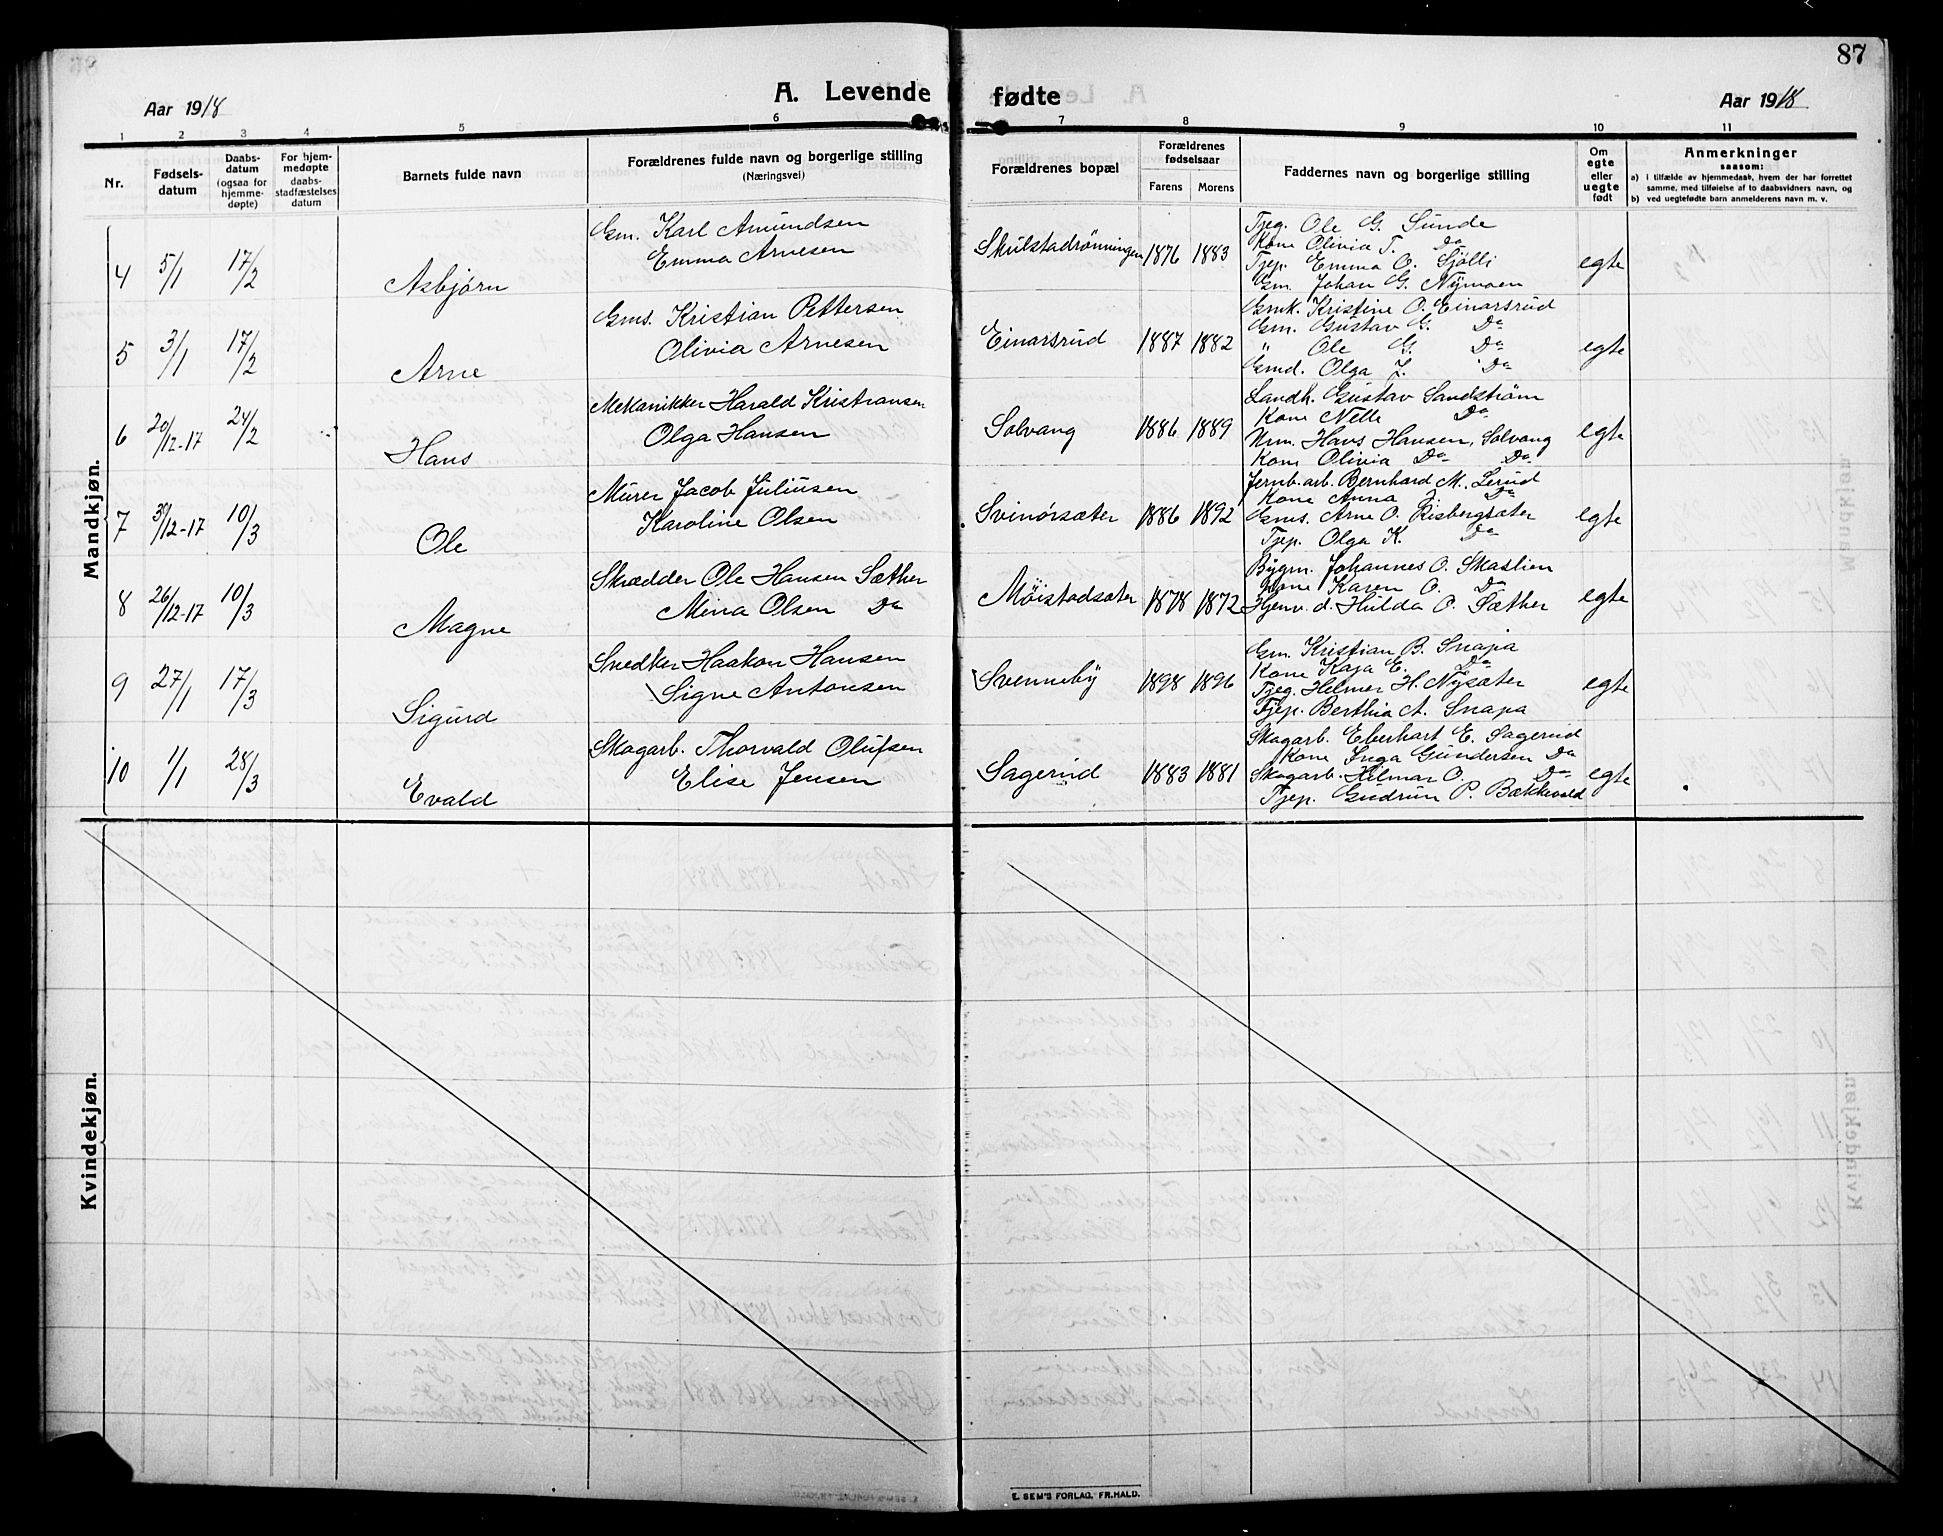 87
A. Levende fødte
Aar 1918
Aar 1918
1 2 3 4 5 6 7 8 9 10 11
Nr.
Fødsels-
datum
Daabs-
datum
(ogsaa for
hjemme-
døpte)
For hjem-
medøpte
daabs-
stadfæstelses
datum
Barnets fulde navn
Forældrenes fulde navn og borgerlige stilling
(Næringsvei)
Forældrenes bopæl
Forældrenes
fødselsaar
Farens Morens
Faddernes navn og borgerlige stilling
Om
egte
eller
uegte
født
Anmerkninger
saasom:
a) i tilfælde av hjemmedaab, hvem der har forrettet
samme, med tilføielse af to daabsvidners navn, og
b) ved uegtefødte barn anmelderens navn m. v.
Mandkjøn.
4 5/1 17/2 Asbjørn
Gm. Karl Amundsen
Emma Arnesen
Skulstadrønningen 1876 1883
Tjeg. Ole G. Sunde
Kone Olivia T. Do
Tjep. Emma O. Sjølli
Gm. Johan G. Nymoen
egte
5 3/1 17/2 Arne
Gms. Kristian Pettersen
Olivia Arnesen
Einarsrud 1887 1882
Gmk. Kristine O. Einarsrud
Gm. Gustav G. Do
" Ole G. Do
Gmd. Olga Do
egte
6 20/12-17 24/2 Hans
Mekanikker Harald Kristiansen
Olga Hansen
Solvang 1886 1889
Landh. Gustav Sandstrøm
Kone Nelle Do
Hans Hansen, Solvang
Kone Olivia Do Do
egte
7 30/12-17 10/3 Ole
Murer Jacob Juliusen
Karoline Olsen
Svinørsæter 1886 1892
Jernb.arb. Bernhard M. Lerud
Kone Anna Do
Gms. Arne O. Risbergsæter
Tjep. Olga K. Do
egte
8 26/12-17 10/3 Magne
Skrædder Ole Hansen Sæther
Mina Olsen Do
Møistadsæter 1878 1872
Bygm. Johannes O. Skaslien
Kone Karen O. Do
Hjemv. d. Hulda O. Sæther
egte
9 27/1 17/3 Sigurd
Snedker Haakon Hansen
Signe Antonsen
Svenneby 1898 1896
Gm. Kristian B. Snapa
Kone Kaja E. Do
Tjeg. Helmer H. Nysæter
Tjep. Berthia A. Snapa
egte
10 1/1 28/3 Evald
Skogarb. Thorvald Olufsen
Elise Jensen
Sagerud 1883 1881
Skogarb. Eberhart E. Sagerud
Kone Inga Gundersen Do
Skogarb. Hilmar O. Do
Tjep. Gudrun P. Bækkevold
egte
Kvindekjøn.
E. SEM'S FORLAG, FR.HALD.